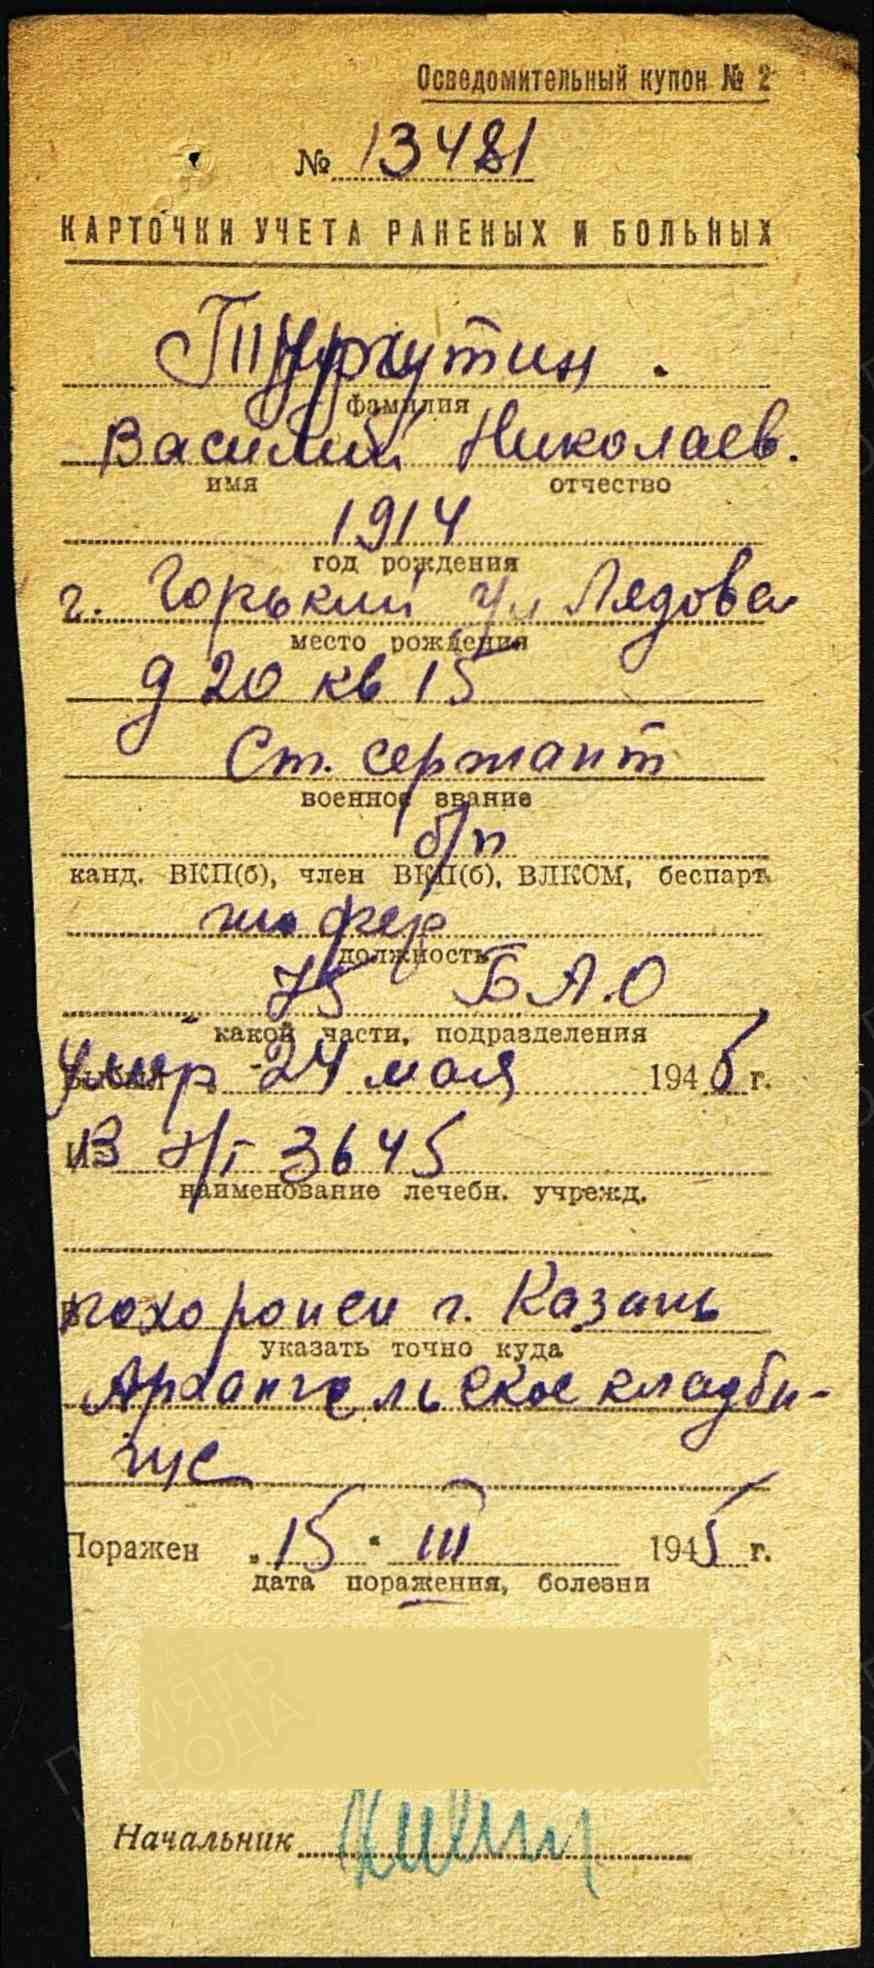 Осведомительный купон № 2
№ 13481
КАРТОЧКИ УЧЕТА РАНЕНЫХ И БОЛЬНЫХ
фамилия
Василий Николаев.
имя отчество
1914
год рождения
г. Горький ул Лядова
место рождения
д 20 кв 15
Ст. сержант
военное звание
б/п
канд. ВКП(б), член ВКП(б), ВЛКСМ, беспарт.
шофер
должность
75 Б.А.О
какой части, подразделения
умер 24 мая 1945 г.
из 3645
наименование лечебн. учрежд.
похоронен г. Казань
указать точно куда
Архангельское кладби-
ще
Поражен „15" III 1945 г.
дата поражения, болезни
Начальник
ПАМЯТЬ
НАРОДА